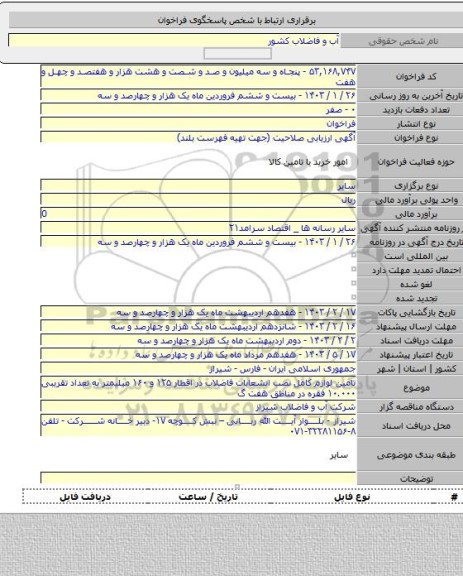 برقراری ارتباط با شخص پاسخگوی فراخوان
نام شخص حقوقی آب و فاضلاب کشور
کد فراخوان ۵۳,۱۶۸,۷۴۷ - پنجاه و سه میلیون و صد و شصت و هشت هزار و هفتصد و چهل و هفت
تاریخ آخرین به روز رسانی ۲۶ / ۱ / ۱۴۰۳ - بیست و ششم فروردین ماه یک هزار و چهارصد و سه
تعداد دفعات بازدید ۰ - صفر
نوع انتشار فراخوان
نوع فراخوان آگهی ارزیابی صلاحیت (جهت تهیه فهرست بلند)
حوزه فعالیت فراخوان امور خرید یا تامین کالا
نوع برگزاری سایر
واحد پولی برآورد مالی ریال
برآورد مالی 0
روزنامه منتشر کننده آگهی سایر رسانه ها _ اقتصاد سرآمد۲۱
تاریخ درج آگهی در روزنامه ۲۶ / ۱ / ۱۴۰۳ - بیست و ششم فروردین ماه یک هزار و چهارصد و سه
بین المللی است
احتمال تمدید مهلت دارد
لغو شده
تجدید شده
تاریخ بازگشایی پاکات ۱۷ / ۲ / ۱۴۰۳ - هفدهم اردیبهشت ماه یک هزار و چهارصد و سه
مهلت ارسال پیشنهاد ۱۶ / ۲ / ۱۴۰۳ - شانزدهم اردیبهشت ماه یک هزار و چهارصد و سه
مهلت دریافت اسناد ۲ / ۲ / ۱۴۰۳ - دوم اردیبهشت ماه یک هزار و چهارصد و سه
تاریخ اعتبار پیشنهاد ۱۷ / ۵ / ۱۴۰۳ - هفدهم مرداد ماه یک هزار و چهارصد و سه
کشور | استان | شهر جمهوری اسلامی ایران - فارس - شیراز
موضوع تامین لوازم کامل نصب انشعابات فاضلاب در اقطار ۱۲۵ و ۱۶۰ میلیمتر به تعداد تقریبی ۱۰,۰۰۰ فقره در مناطق هفت گ
دستگاه مناقصه گزار شرکت آب و فاضلاب شیراز
محل دریافت اسناد شیراز - بلوار آیت الله ربانی – نبش کوچه ۱۷- دبیر خانه شرکت - تلفن ۸-۳۲۲۸۱۱۵۶-۰۷۱
طبقه بندی موضوعی سایر
توضیحات
# نوع فایل تاریخ / ساعت دریافت فایل